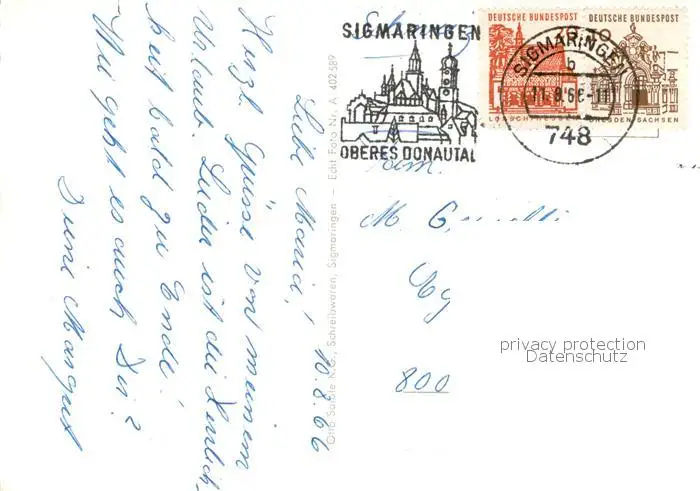 Liebe Maria! 10.8.66
Herzl. Grüsse von meinem
Urlaub. Leider ist die
heit bald zu Ende!
Wie geht es auch Dir?
Deine Margret
Otto Saible K.G., Schreibwaren, Sigmaringen – Echt Foto Nr. A 402 589
SIGMARINGEN
OBERES DONAUTAL
DEUTSCHE BUNDESPOST
DEUTSCHE BUNDESPOST
SIGMARINGEN
b
11.8.66-11
748
DRESDEN SACHSEN
M.
800
privacy protection
Datenschutz